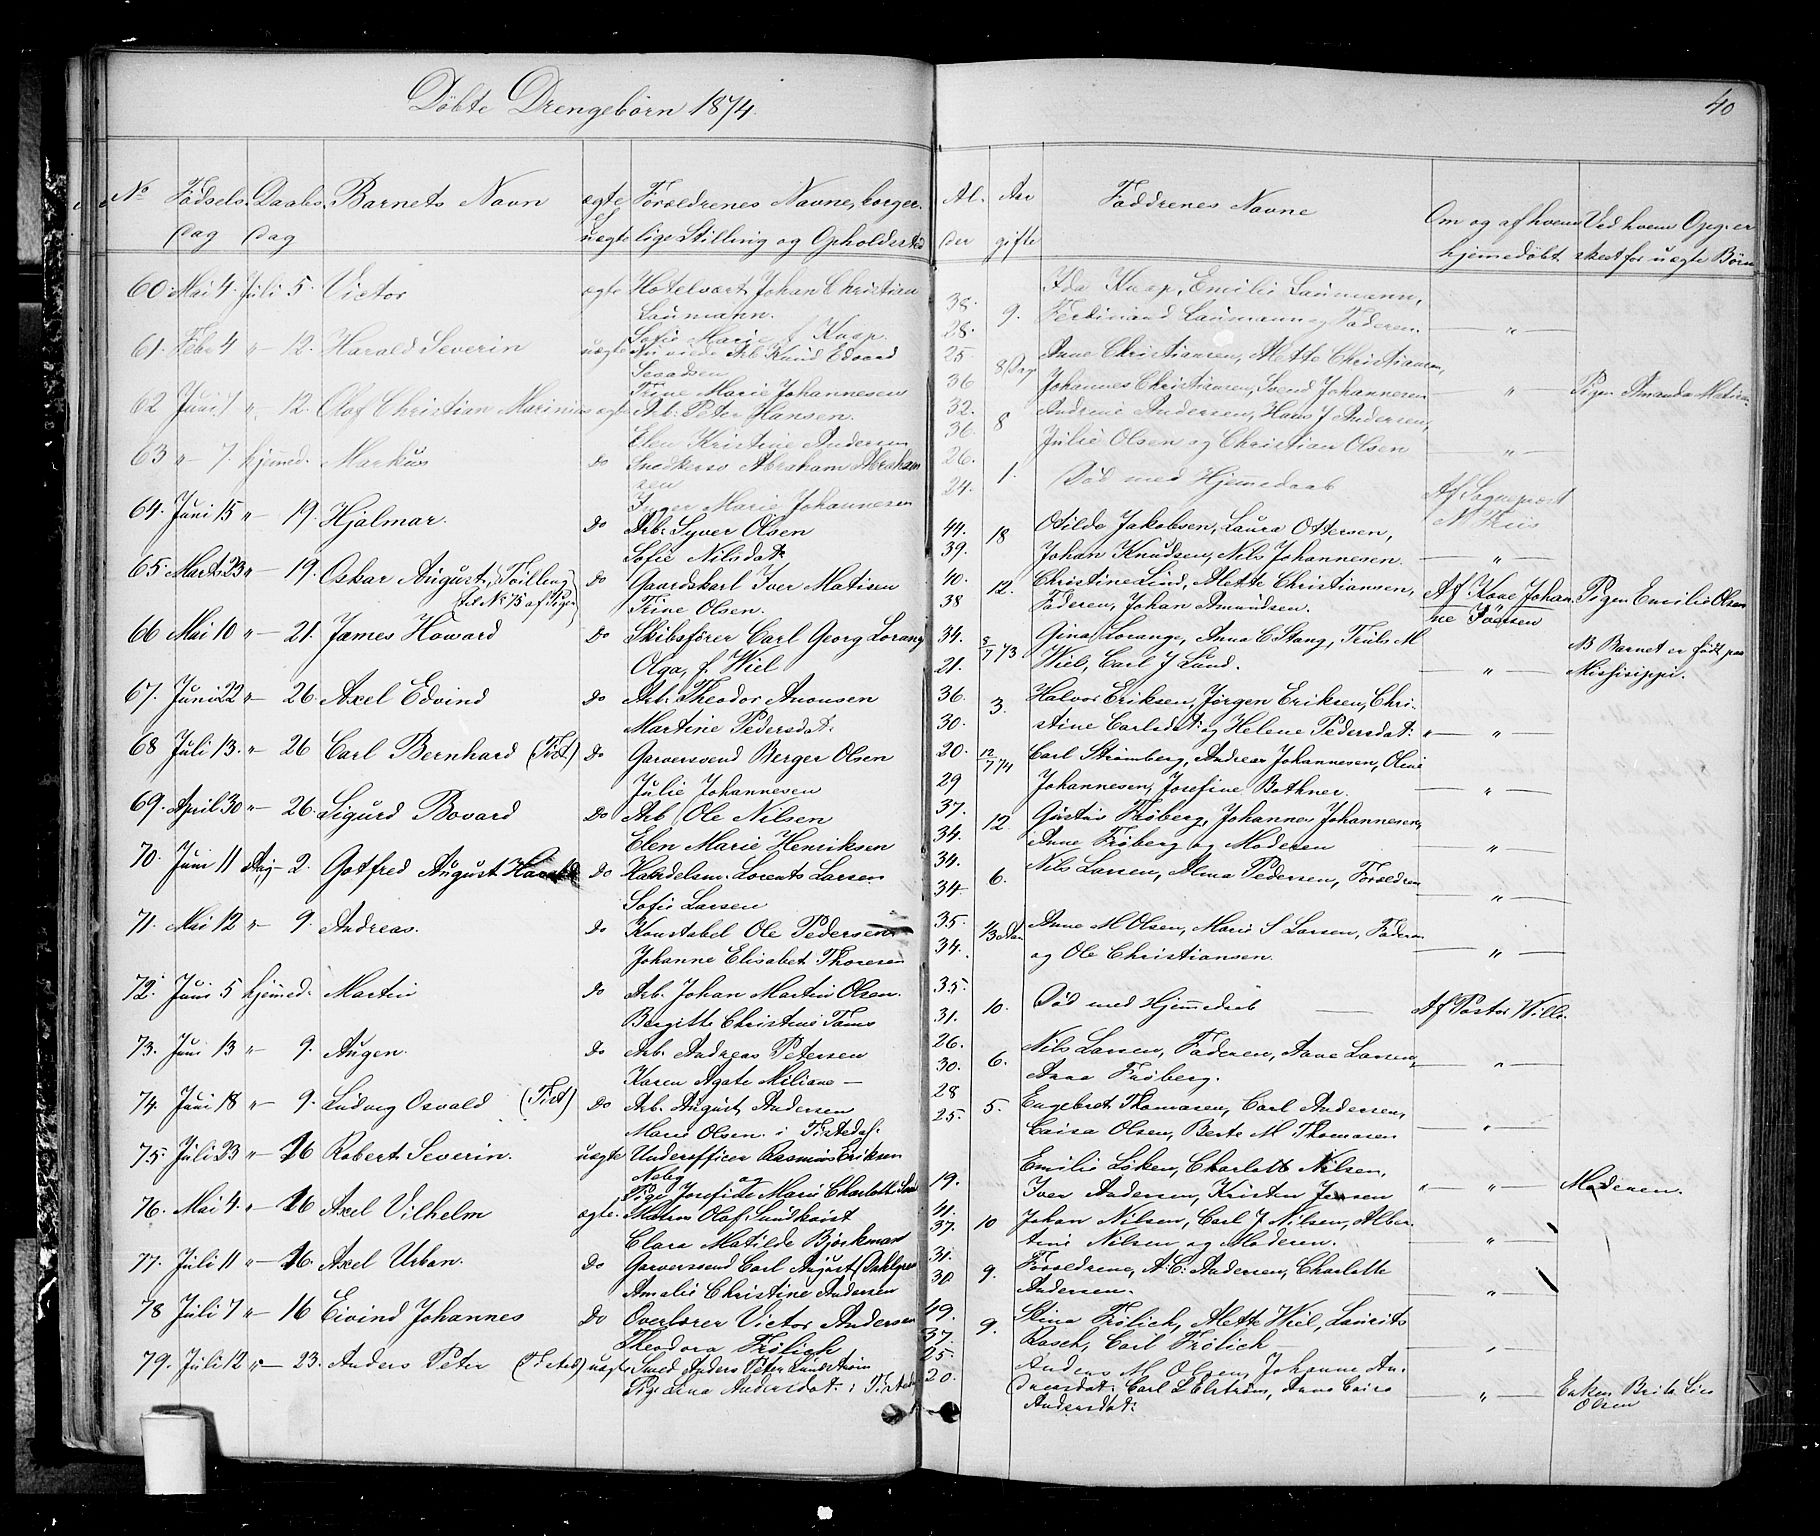 Döbte Drengebørn 1874.
40
No Fødsels Daabs Barnets Navn ægte Forældrenes Navne, borger- Al- Aar Faddrenes Navne Om og af hvem Ved hvem Opg. er
dag dag el uægte lige Stilling og Opholdssted der gifte hjemedøbt skeet for uægte Børn
60 Mai 4. Juli 5. Victor ægte Hotelvært Johan Christian 38. 9. Ida Knap, Emilie Laumann,
Laumann. 28. Ferdinand Laumann og Faderen — " —
Sofie Marie f. Knap.
61. Febr 4 " 12. Harald Severin uægte Arb. Knud Edvard 25 Anne Christiansen, Mette Christiansen,
Trine Marie Johannesen 36 Johannes Christiansen, Svend Johannesen — " — Pigen Amanda
62 Juni 1 " 12. Olaf Christian Marinius ægte Arb: Peter Hansen. 32. 8 Andrine Andersen, Hans J Andersen,
Elen Kristine Andersen 36. Julie Olsen og Christian Olsen — " —
63 " 7. hjemed. Markus do Snedkersv Abraham Abraham 26. 1. Död med Hjemedaab Af Sognepræst
sen 24.
Inger Marie Johannesen
64. Juni 15 " 19. Hjalmar. do Arb: Syver Olsen 44. 18 Otilde Jakobsen, Laura Ottersen,
Sofie Nilsdat: 39. Johan Knudsen, Nils Johannesen. — " —
65. Marts 23 " 19. Oskar August, (Tvilling do Gaardskarl Iver Matisen 40. 12. Christine Lind, Mette Christiansen, Af Kone Johan Pigen Emilie Olsen
til No 75 af Piger) Trine Olsen. 38 Faderen, Johan Amundsen. ne Iversen
66 Mai 10 " 21. James Howard do Skibsfører Carl Georg Lorang 34. 8/7 73 Gina Lorange, Anna C Stang, Truls M NB Barnet er født paa
Olga, f. Wiel 21. Wiel, Carl J Lund. — " — Missisippi.
67. Juni 22 " 26. Axel Edvind do Arb: Theodor Amonsen 36. 3. Halvor Eriksen, Jörgen Eriksen, Chri-
Martine Pedersdat: 30. stine Carlsdat: og Helene Pedersdat: — " —
68 Juli 13. " 26 Carl Bernhard (Tist) do Garversvend Berger Olsen 20. 12/7 74 Carl Strömberg, Andreas Johannesen, Oline
Julie Johannesen 29 Johannesen, Josefine Bothner. — " —
69. April 30 " 26. Sigurd Bovard do Arb Ole Nilsen 37. 12. Gustav Fröberg, Johannes Johannesen,
Elen Marie Henriksen 34. Anne Fröberg og Moderen — " —
70. Juni 11 Aug 2. Gotfred August Harald do Handelsm. Lorents Larsen 34. 6. Nils Larsen, Alma Pedersen, Forældren
Sofie Larsen 34 — " —
71. Mai 12 " 9. Andreas. do Konstabel Ole Pedersen 35. Anne M Olsen, Marie S Larsen, Faderen
Johanne Elisabet Thoresen 34. og Ole Christiansen. — " —
72. Juni 5 hjemed. Martin do Arb. Johan Martin Olsen. 35. 10. Död med Hjemmedaab — Af Pastor Wille.
Birgitte Christine Tams 31.
73. Juni 13 " 9. Augen. do Arb. Andreas Petersen 26. 6. Nils Larsen, Faderen, Anne Larsen,
Karen Agate Miliane — 30. Anna Fröberg. — " —
74. Juni 18 " 9. Ludvig Osvald (Tist) do Arb. August Andersen 28 5. Engebret Thomasen, Carl Andersen,
Marie Olsen. i Tistedal: 25. Caisa Olsen, Berte M Thomasen — " —
75. Juli 23 " 16 Robert Severin. uægte Underofficer Rasmus Eriksen Emilie Löken, Charlotte Nilsen,
Pige Josefine Marie Charlotte 19. Iver Andersen, Kristen Jensen " " Moderen.
76. Mai 4. " 16 Axel Vilhelm ægte. Matros Olaf Sundkvist 41. 10 Johan Nilsen, Carl J Nilsen, Alber
Clara Matilde Björkman 37. tine Nilsen og Moderen. — " —
77. Juli 11 " 16. Axel Urban. do Garversvend Carl August Dahlgren 31. 9. Forældrene, A. C: Andersen, Charlotte
Amalie Christine Andersen 30. Andersen. — " —
78 Juli 7 " 16 Eivind Johannes do Overlærer Victor Andersen 49. 9. Stina Frölich, Mette Wiel, Laurits
Theodora Frölich 37. Rasch, Carl Frölich — " —
79. Juli 12 " 23. Anders Peter (Tisted) uægte Smed Anders Peter Lundström 25. Anders M Olsen, Johanne An-
Pige Andersdat: i Tistedal 20. dreasdat: Carl L Elström, Anne Caisa — " — Enken Brita Lisa
Andersdat: Olsen